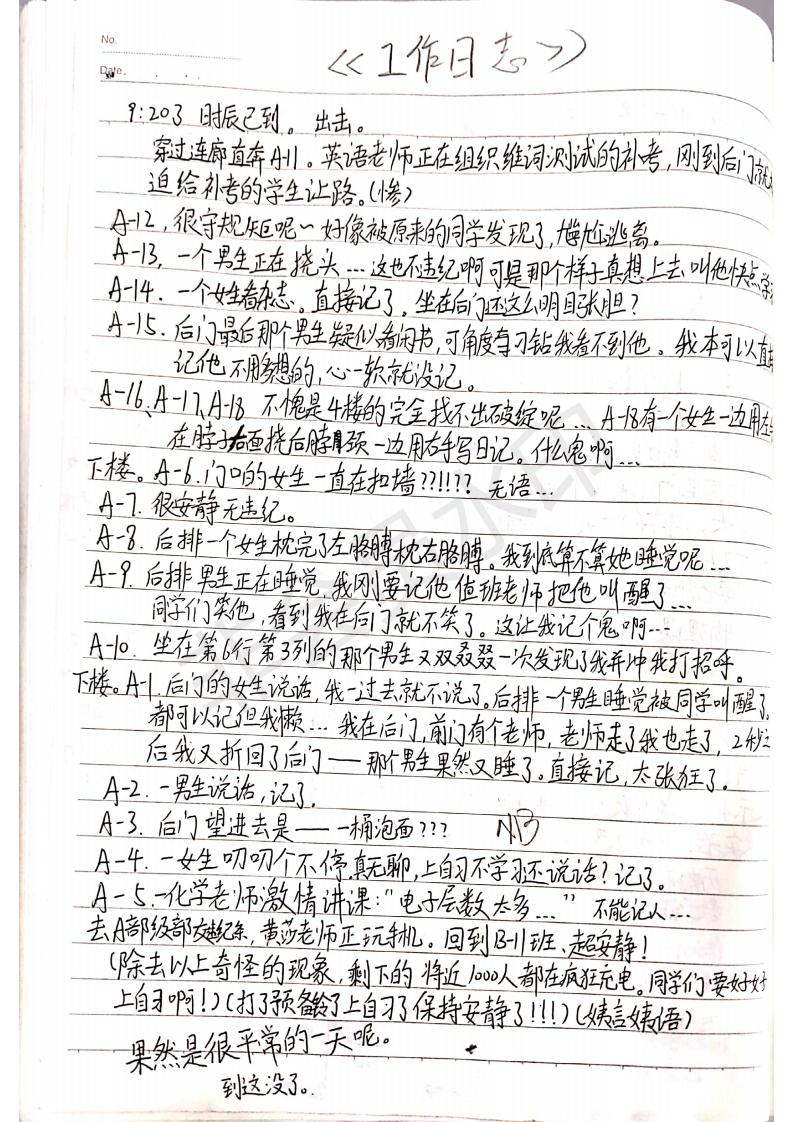 No.
Date.
《工作日志》
9:20了 时辰已到。出击。
穿过连廊直奔A-11。英语老师正在组织维词测试的补考，刚到后门就
迫给补考的学生让路。(惨)
A-12，很守规矩呢~好像被原来的同学发现了，尴尬逃离。
A-13，一个男生正在挠头...这也不违纪啊可是那个样子真想上去叫他快点学
A-14. 一个女生看杂志。直接记了。坐在后门还这么明目张胆？
A-15. 后门最后那个男生疑似看闲书，可角度刁钻我看不到他。我本可以直接
记他不用多想的，心一软就没记。
A-16、A-17、A-18 不愧是4楼的完全找不出破绽呢... A-18有一个女生一边用左
在脖子右面挠后脖颈一边用右手写日记。什么鬼啊...
下楼。A-6.门口的女生一直在扣墙??!!?? 无语...
A-7. 很安静无违纪。
A-8. 后排一个女生枕完了左胳膊枕右胳膊。我到底算不算她睡觉呢...
A-9. 后排男生正在睡觉，我刚要记他值班老师把他叫醒了...
同学们笑他，看到我在后门就不笑了。这让我记个鬼啊...
A-10. 坐在第6行第3列的那个男生又双叒叕一次发现了我并冲我打招呼。
下楼。A-1.后门的女生说话，我一过去就不说了。后排一个男生睡觉被同学叫醒了。
都可以记但我懒... 我在后门，前门有个老师，老师走了我也走了，2秒之
后我又折回了后门——那个男生果然又睡了。直接记，太张狂了。
A-2. 一男生说话，记了.
A-3. 后门望进去是——一桶泡面??? NB
A-4. 一女生叨叨个不停真无聊，上自习不学习还说话？记了。
A-5.一化学老师激情讲课："电子层数太多..." 不能记人...
去A部级部交违纪条，黄莎老师正玩手机。回到B-11班、超安静！
(除去以上奇怪的现象，剩下的将近1000人都在疯狂充电。同学们要好好
上自习啊！)(打了预备铃了上自习了保持安静了!!!)(姨言姨语)
果然是很平常的一天呢。
到这没了。